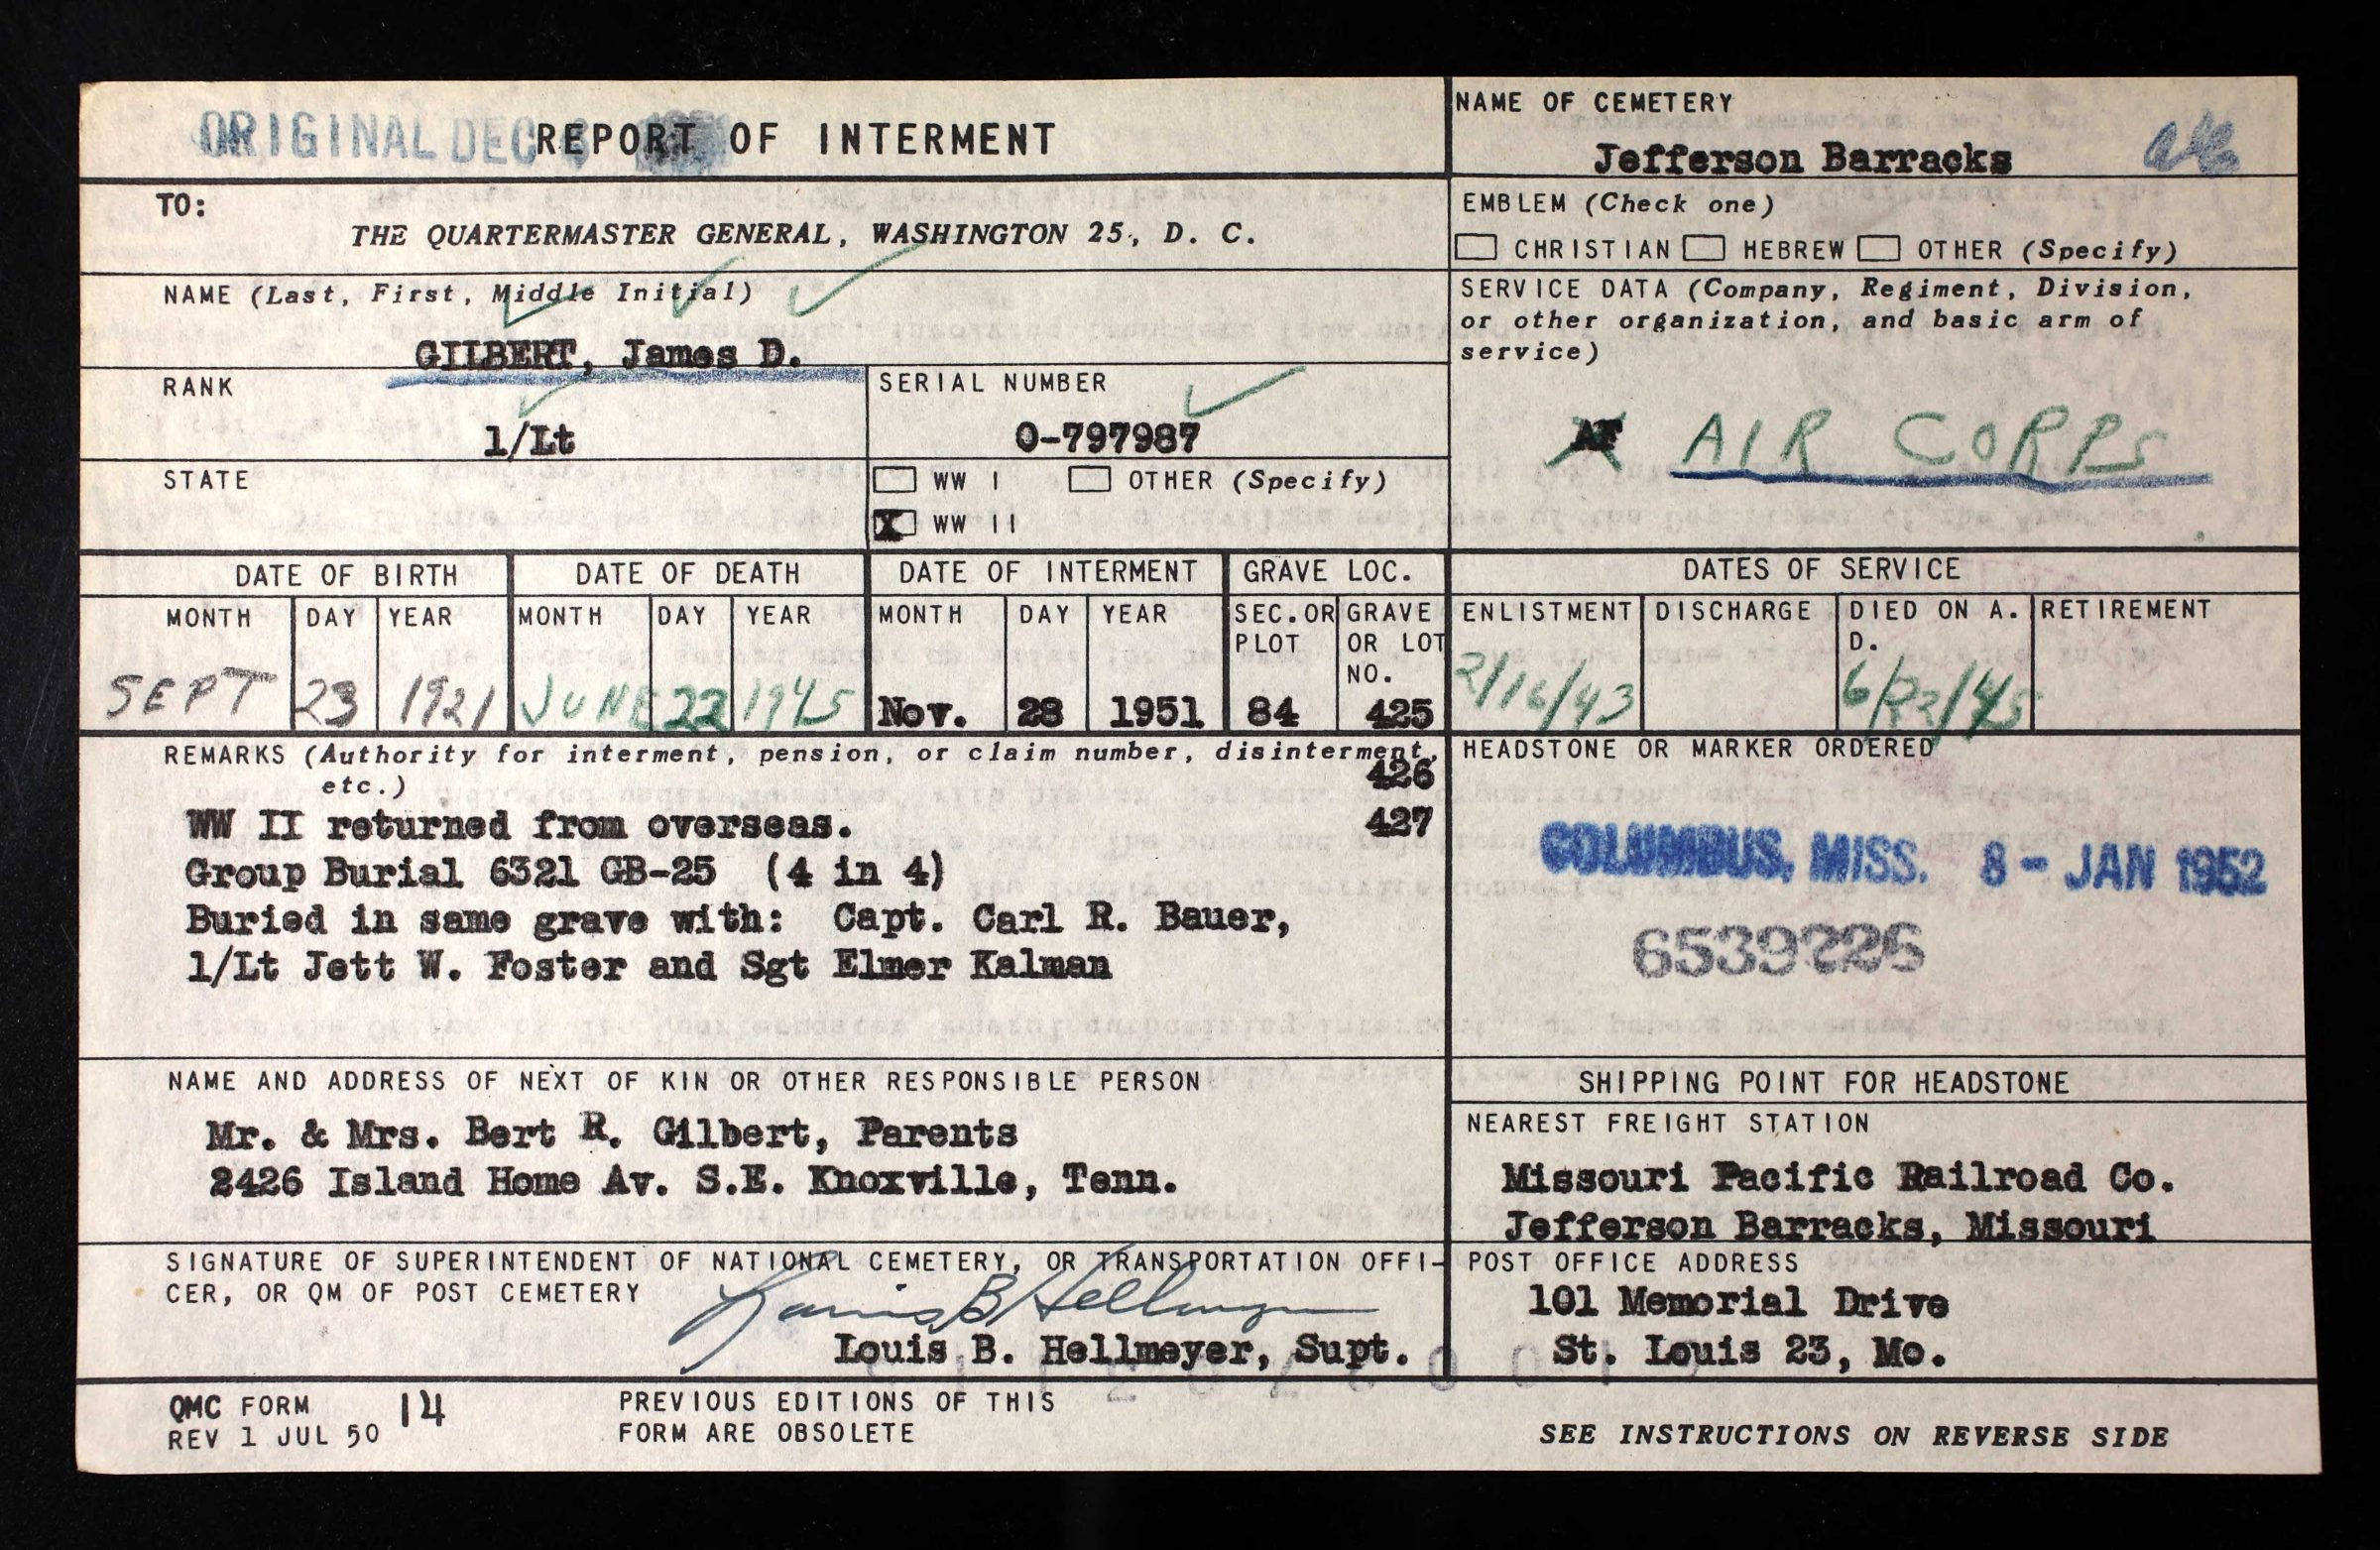 ORIGINAL DEC
REPORT OF INTERMENT
NAME OF CEMETERY
Jefferson Barracks
TO:
THE QUARTERMASTER GENERAL, WASHINGTON 25, D. C.
EMBLEM (Check one)
CHRISTIAN HEBREW OTHER (Specify)
NAME (Last, First, Middle Initial)
GILBERT, James D.
SERVICE DATA (Company, Regiment, Division,
or other organization, and basic arm of
service)
AIR CORPS
RANK
1/Lt
SERIAL NUMBER
O-797987
STATE
WW I OTHER (Specify)
X WW II
DATE OF BIRTH DATE OF DEATH DATE OF INTERMENT GRAVE LOC. DATES OF SERVICE
MONTH DAY YEAR MONTH DAY YEAR MONTH DAY YEAR SEC. OR PLOT GRAVE OR LOT NO. ENLISTMENT DISCHARGE DIED ON A. D. RETIREMENT
SEPT 23 1921 JUNE 22 1945 Nov. 28 1951 84 425 2/16/43 6/22/45
REMARKS (Authority for interment, pension, or claim number, disinterment,
etc.)
426
427
WW II returned from overseas.
Group Burial 6321 GB-25 (4 in 4)
Buried in same grave with: Capt. Carl R. Bauer,
1/Lt Jett W. Foster and Sgt Elmer Kalman
HEADSTONE OR MARKER ORDERED
COLUMBUS, MISS. 8 - JAN 1952
6539226
NAME AND ADDRESS OF NEXT OF KIN OR OTHER RESPONSIBLE PERSON
Mr. & Mrs. Bert R. Gilbert, Parents
2426 Island Home Av. S.E. Knoxville, Tenn.
SHIPPING POINT FOR HEADSTONE
NEAREST FREIGHT STATION
Missouri Pacific Railroad Co.
Jefferson Barracks, Missouri
SIGNATURE OF SUPERINTENDENT OF NATIONAL CEMETERY, OR TRANSPORTATION OFFI-
CER, OR QM OF POST CEMETERY
Louis B Hellmeyer
Louis B. Hellmeyer, Supt.
POST OFFICE ADDRESS
101 Memorial Drive
St. Louis 23, Mo.
QMC FORM 14
REV 1 JUL 50
PREVIOUS EDITIONS OF THIS
FORM ARE OBSOLETE
SEE INSTRUCTIONS ON REVERSE SIDE